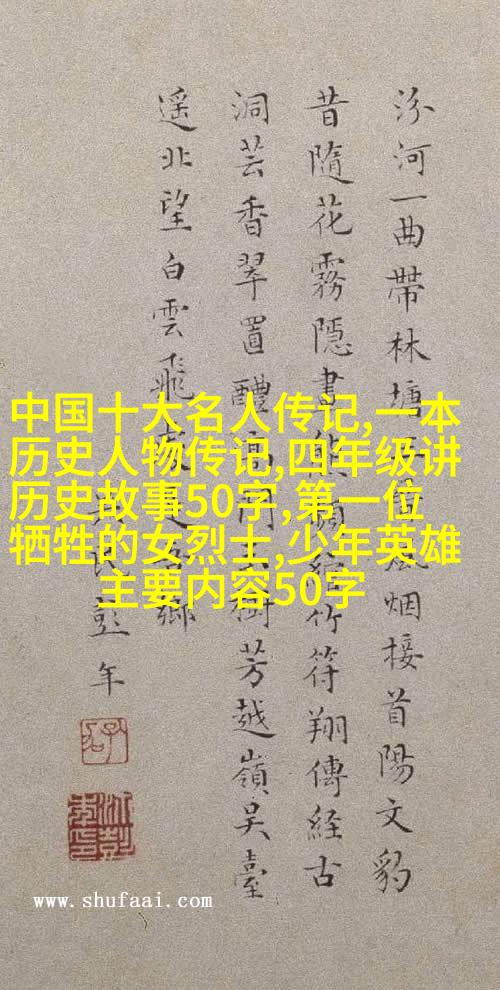 汾河一曲帶林塘
烟接首陽文豹
昔隨花霧隱
竹符翔傳經古
洞芸香翠置醴
芳越嶺吴臺
遥北望白雲飛
年
中国十大名人传记,一本
历史人物传记,四年级讲
历史故事50字,第一位
牺牲的女烈士,少年英雄
主要内容50字
www.shufaai.com